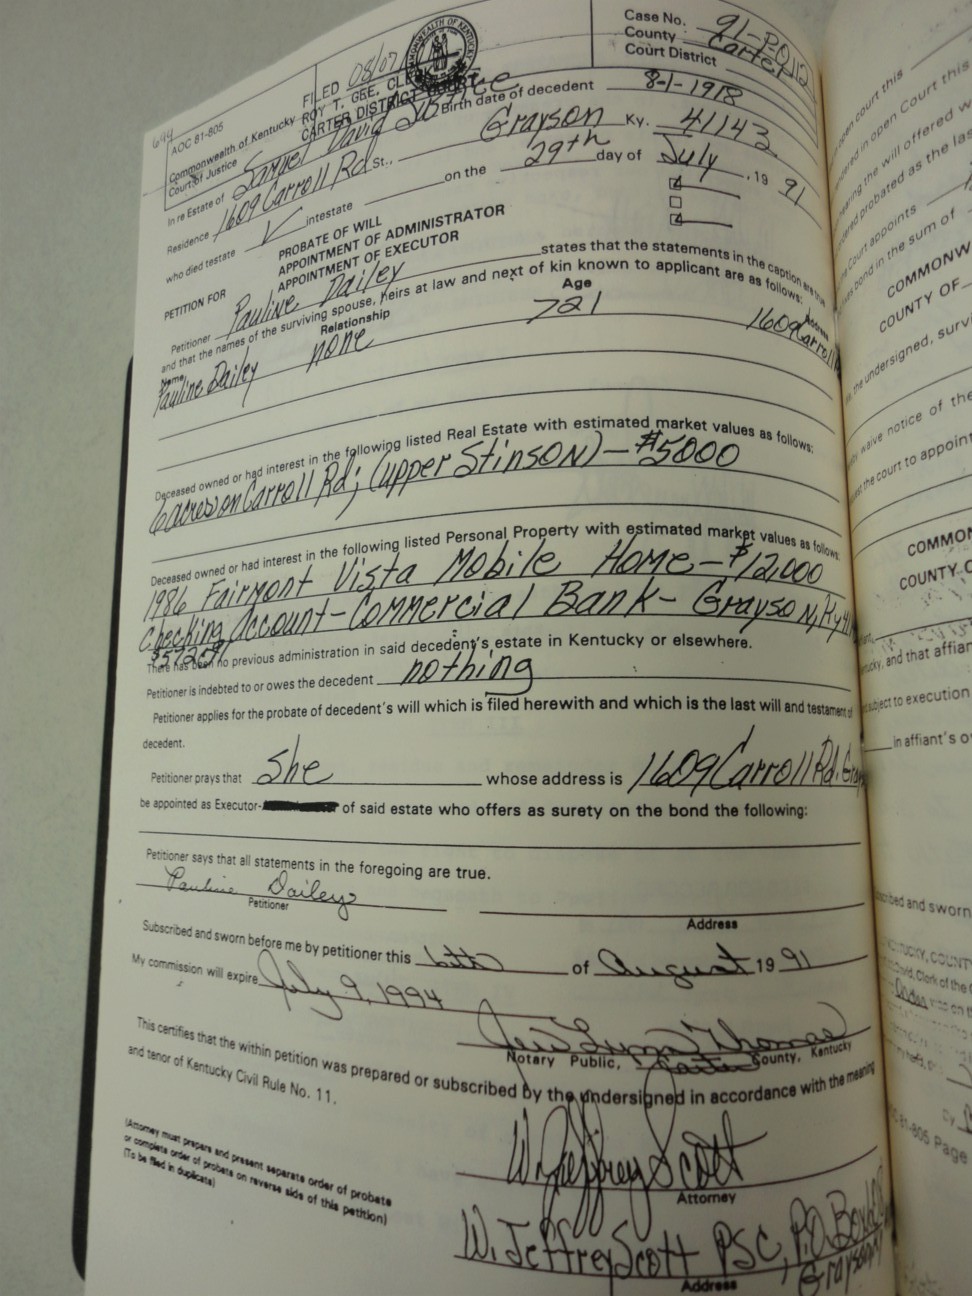 694
AOC 81-805
FILED 08/07
ROY T. GEE, CLERK
CARTER DISTRICT COURT
COMMONWEALTH OF KENTUCKY
Case No. 91-P-0112
County Carter
Court District
Commonwealth of Kentucky
Court of Justice
In re Estate of Samuel David Justice Birth date of decedent 8-1-1918
Residence 1609 Carroll Rd St., Grayson Ky. 41143
who died testate ✓ intestate on the 29th day of July, 1991
PETITION FOR
PROBATE OF WILL
APPOINTMENT OF ADMINISTRATOR
APPOINTMENT OF EXECUTOR
Petitioner Pauline Dailey states that the statements in the caption are true
and that the names of the surviving spouse, heirs at law and next of kin known to applicant are as follows:
Name Relationship Age Address
Pauline Dailey none 721 1609 Carroll
Deceased owned or had interest in the following listed Real Estate with estimated market values as follows:
6 acres on Carroll Rd; (upper Stinson) - $5000
Deceased owned or had interest in the following listed Personal Property with estimated market values as follows:
1986 Fairmont Vista Mobile Home - $12,000
Checking Account - Commercial Bank - Grayson, Ky
There has been no previous administration in said decedent's estate in Kentucky or elsewhere.
Petitioner is indebted to or owes the decedent nothing
Petitioner applies for the probate of decedent's will which is filed herewith and which is the last will and testament of
decedent.
Petitioner prays that She whose address is 1609 Carroll Rd. Gray
be appointed as Executor- of said estate who offers as surety on the bond the following:
Petitioner says that all statements in the foregoing are true.
Pauline Dailey
Petitioner Address
Subscribed and sworn before me by petitioner this 6th of August 1991
My commission will expire July 9, 1994
Thomas
Notary Public, Carter County, Kentucky
This certifies that the within petition was prepared or subscribed by the undersigned in accordance with the meaning
and tenor of Kentucky Civil Rule No. 11.
W. Jeffrey Scott
Attorney
(Attorney must prepare and present separate order of probate
or complete order of probate on reverse side of this petition)
(To be filed in duplicate)
W. Jeffrey Scott PSC, P.O. Box
Grayson
Address
open court this
in open Court this
the will offered
probated as the las
Court appoints
bond in the sum of
COMMONW
COUNTY OF
the undersigned, survi
waive notice of the
the court to appoint
COMMON
COUNTY O
and that affian
subject to execution
in affiant's o
and sworn
81-805 Page